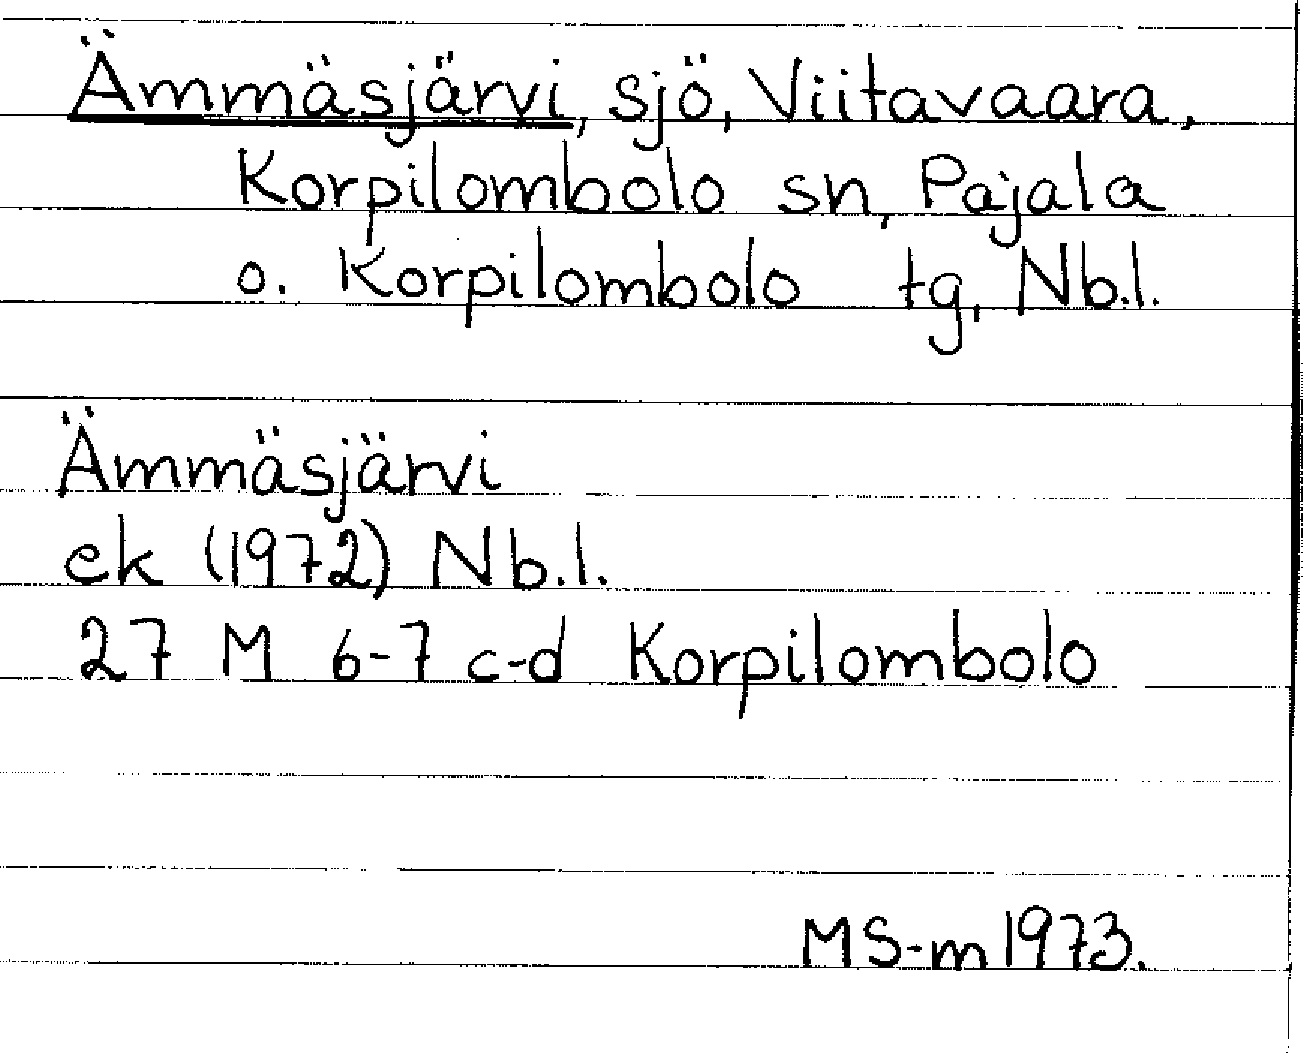 Ämmäsjärvi, sjö, Viitavaara,
Korpilombolo sn, Pajala
o. Korpilombolo tg, Nb.l.
Ämmäsjärvi
ek (1972) Nb.l.
27 M 6-7 c-d Korpilombolo
MS-m 1973.